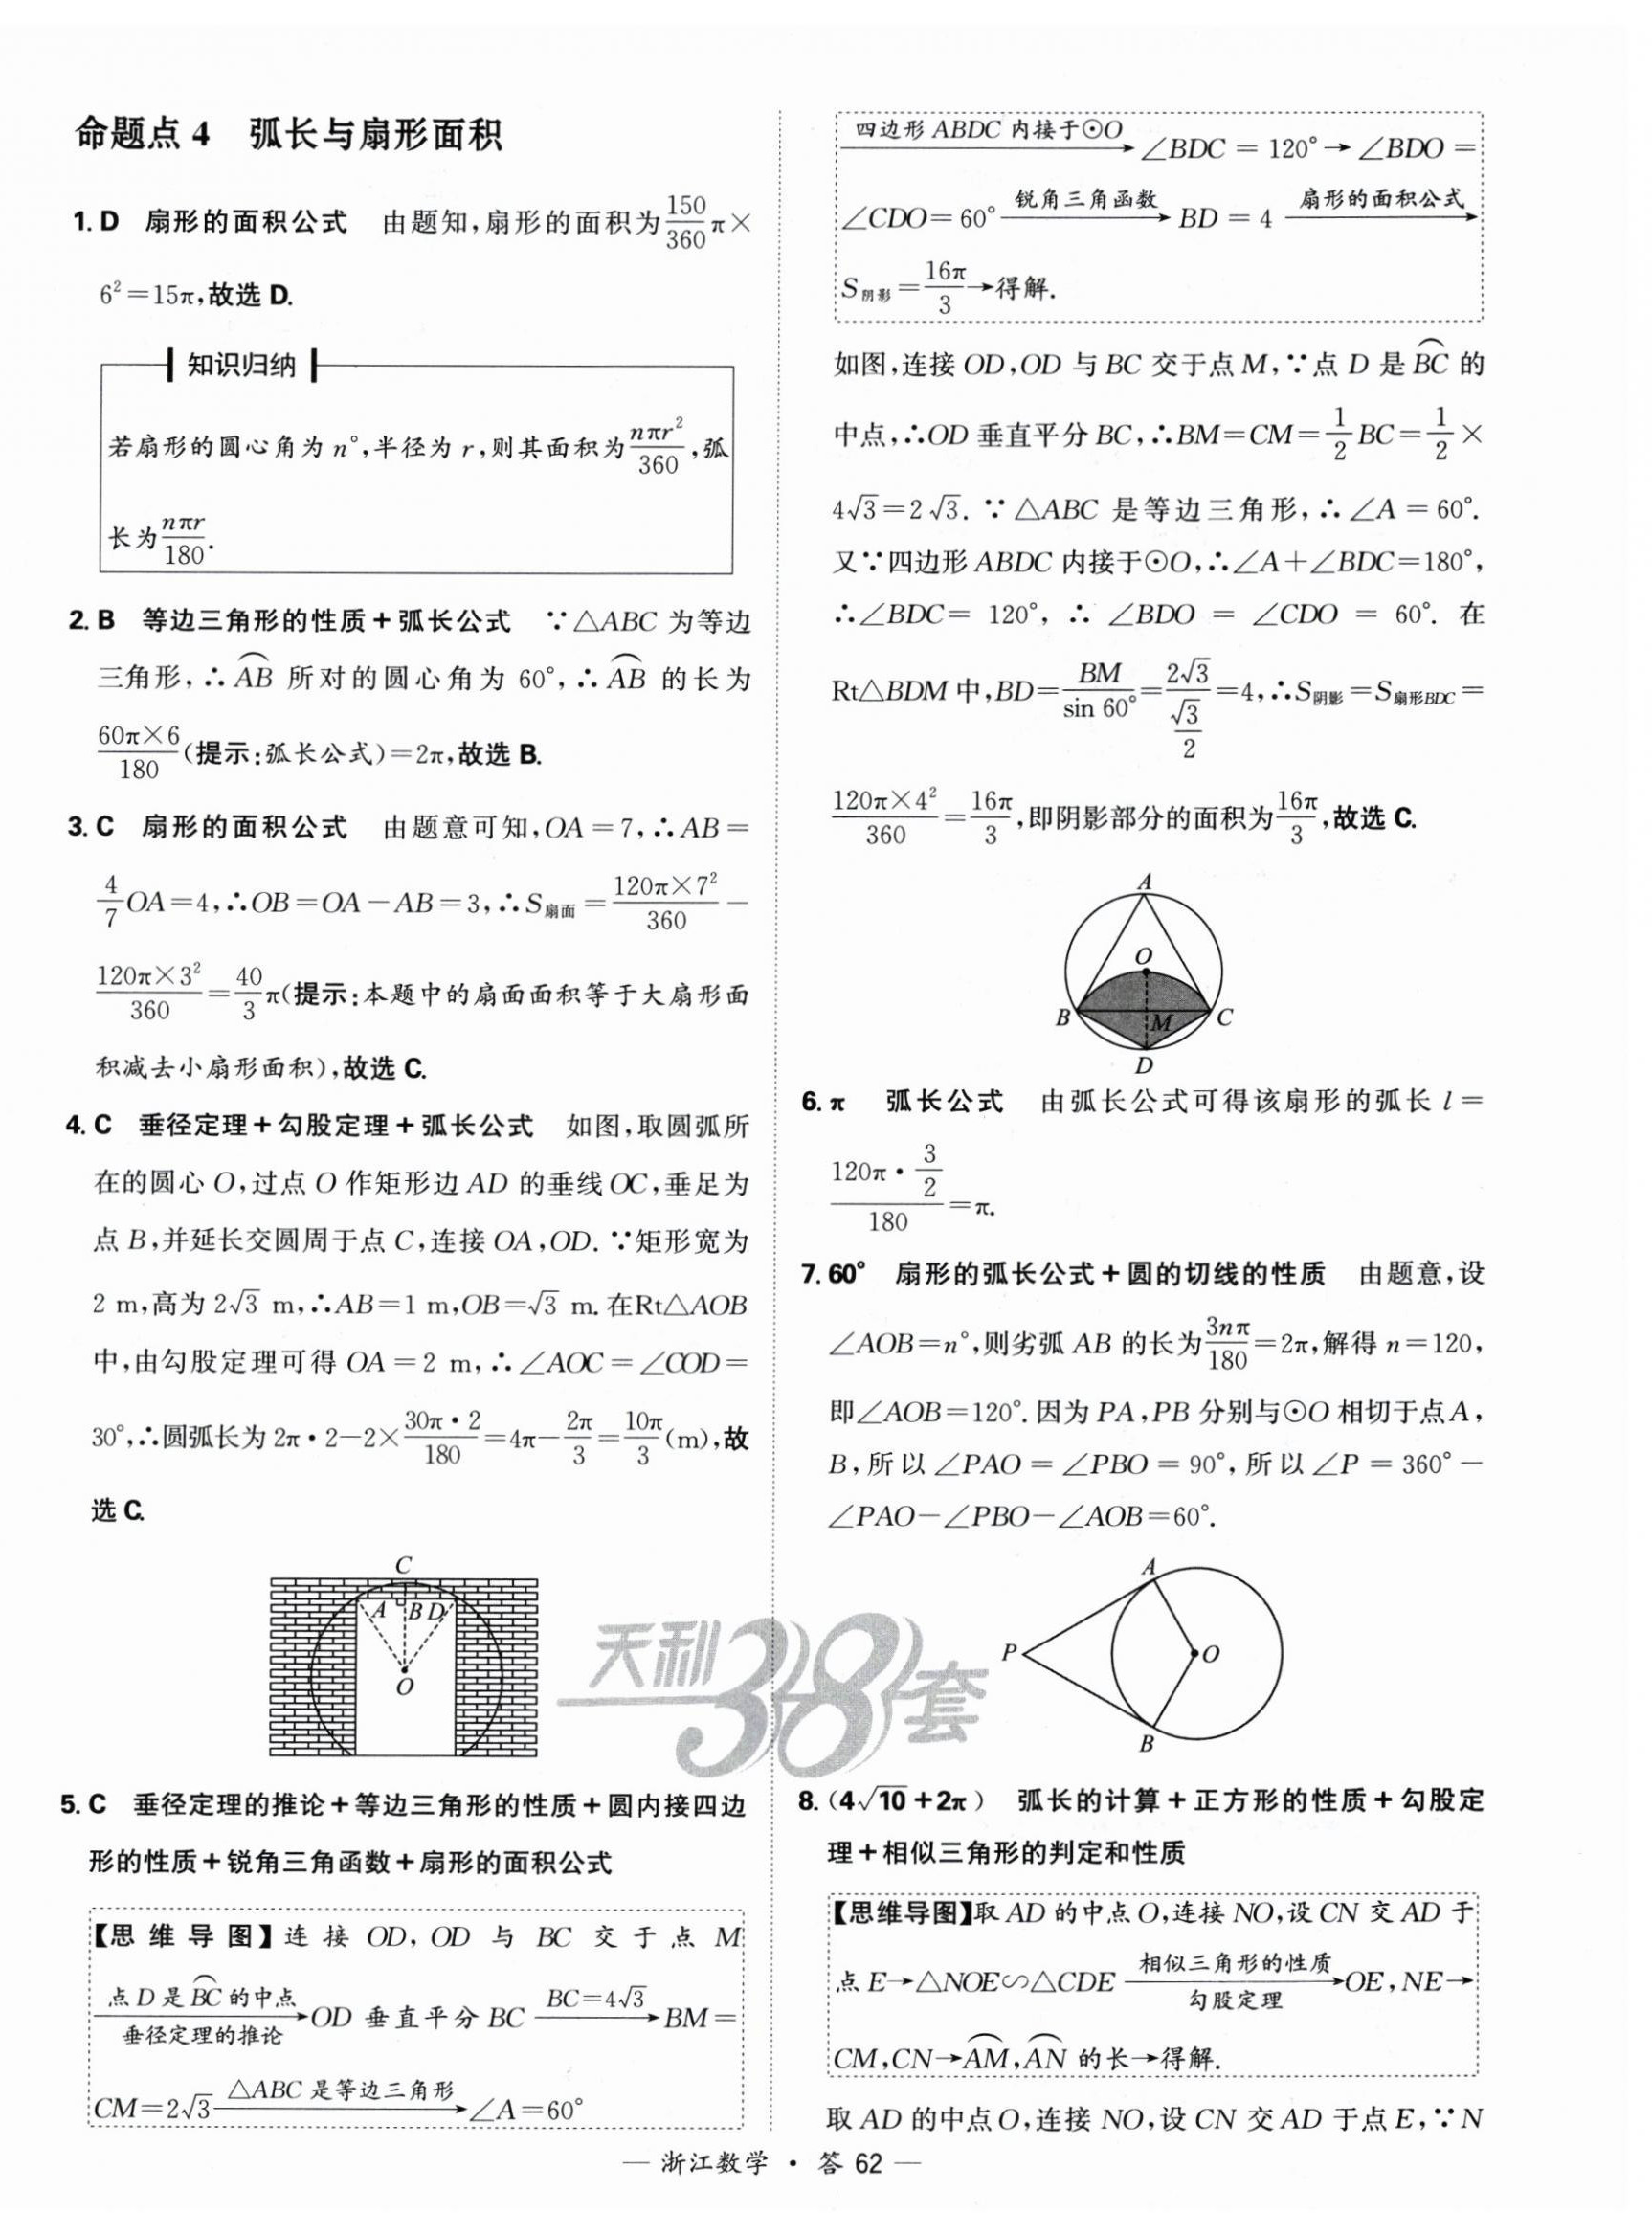 命题点4 弧长与扇形面积
1. D 扇形的面积公式 由题知,扇形的面积为\frac{150}{360}π×
6²=15π,故选 D.
知识归纳
若扇形的圆心角为 n°,半径为 r,则其面积为\frac{nπr²}{360},弧
长为\frac{nπr}{180}.
2. B 等边三角形的性质+弧长公式 ∵△ABC 为等边
三角形,∴\overset{⌒}{AB} 所对的圆心角为 60°,∴\overset{⌒}{AB} 的长为
\frac{60π×6}{180}(提示:弧长公式)=2π,故选 B.
3. C 扇形的面积公式 由题意可知,OA=7,∴AB=
\frac{4}{7}OA=4,∴OB=OA-AB=3,∴S_{扇面}=\frac{120π×7²}{360}-
\frac{120π×3²}{360}=\frac{40}{3}π(提示:本题中的扇面面积等于大扇形面
积减去小扇形面积),故选 C.
4. C 垂径定理+勾股定理+弧长公式 如图,取圆弧所
在的圆心 O,过点 O 作矩形边 AD 的垂线 OC,垂足为
点 B,并延长交圆周于点 C,连接 OA,OD.∵矩形宽为
2 m,高为 2√3 m,∴AB=1 m,OB=√3 m.在Rt△AOB
中,由勾股定理可得 OA=2 m,∴∠AOC=∠COD=
30°,∴圆弧长为 2π·2-2×\frac{30π·2}{180}=4π-\frac{2π}{3}=\frac{10π}{3}(m),故
选 C.
C
A B D
O
5. C 垂径定理的推论+等边三角形的性质+圆内接四边
形的性质+锐角三角函数+扇形的面积公式
【思维导图】连接 OD,OD 与 BC 交于点 M
\xrightarrow[垂径定理的推论]{点 D 是\overset{⌒}{BC}的中点}OD 垂直平分 BC\xrightarrow{BC=4√3}BM=
CM=2√3\xrightarrow{△ABC 是等边三角形}∠A=60°
\xrightarrow{四边形 ABDC 内接于⊙O}∠BDC=120°→∠BDO=
∠CDO=60°\xrightarrow{锐角三角函数}BD=4\xrightarrow{扇形的面积公式}
S_{阴影}=\frac{16π}{3}→得解.
如图,连接 OD,OD 与 BC 交于点 M,∵点 D 是\overset{⌒}{BC}的
中点,∴OD 垂直平分 BC,∴BM=CM=\frac{1}{2}BC=\frac{1}{2}×
4√3=2√3.∵△ABC 是等边三角形,∴∠A=60°.
又∵四边形 ABDC 内接于⊙O,∴∠A+∠BDC=180°,
∴∠BDC=120°,∴∠BDO=∠CDO=60°.在
Rt△BDM 中,BD=\frac{BM}{sin 60°}=\frac{2√3}{\frac{√3}{2}}=4,∴S_{阴影}=S_{扇形BDC}=
\frac{120π×4²}{360}=\frac{16π}{3},即阴影部分的面积为\frac{16π}{3},故选 C.
A
O
B M C
D
6. π 弧长公式 由弧长公式可得该扇形的弧长 l=
\frac{120π·\frac{3}{2}}{180}=π.
7. 60° 扇形的弧长公式+圆的切线的性质 由题意,设
∠AOB=n°,则劣弧 AB 的长为\frac{3nπ}{180}=2π,解得 n=120,
即∠AOB=120°.因为 PA,PB 分别与⊙O 相切于点A,
B,所以∠PAO=∠PBO=90°,所以∠P=360°-
∠PAO-∠PBO-∠AOB=60°.
A
P O
B
天利38套
8. (4√10+2π) 弧长的计算+正方形的性质+勾股定
理+相似三角形的判定和性质
【思维导图】取 AD 的中点 O,连接 NO,设 CN 交 AD 于
点 E→△NOE∽△CDE\xrightarrow[勾股定理]{相似三角形的性质}OE,NE→
CM,CN→\overset{⌒}{AM},\overset{⌒}{AN} 的长→得解.
取 AD 的中点 O,连接 NO,设 CN 交 AD 于点 E,∵N
— 浙江数学 · 答 62 —